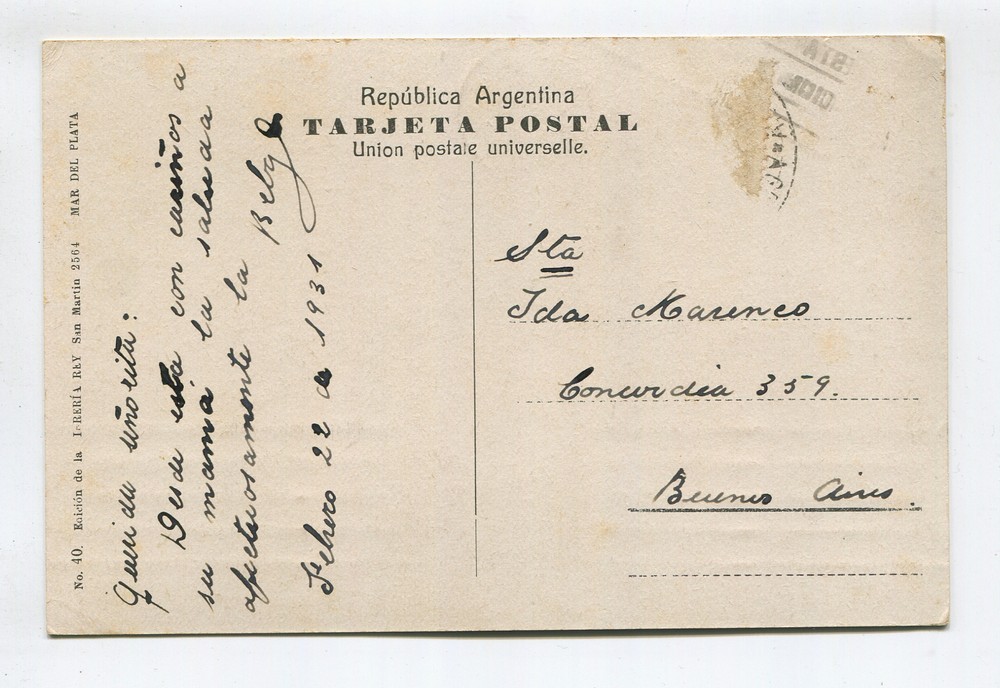 República Argentina
TARJETA POSTAL
Union postale universelle.
No. 40. Edición de la LIBRERÍA REY San Martin 2564 MAR DEL PLATA
Querida señorita:
Desde esta con cariños a
su mamá la saluda
afectuosamente la Belga
Febrero 22 de 1931
Sta
Ida Marenco
Concordia 359.
Buenos Aires.